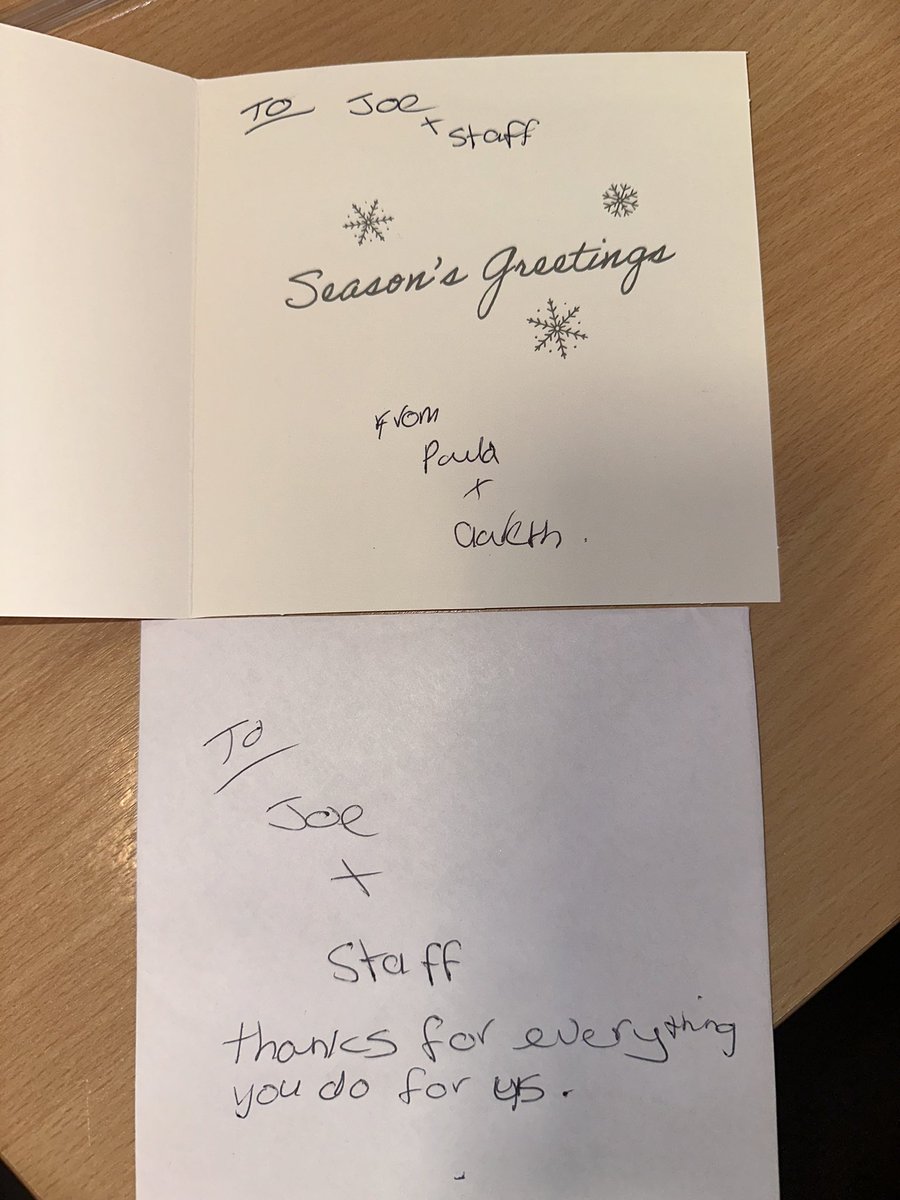 To Joe
+ Staff
Season's Greetings
From
Paula
+
To
Joe
+
Staff
thanks for everything
you do for us.